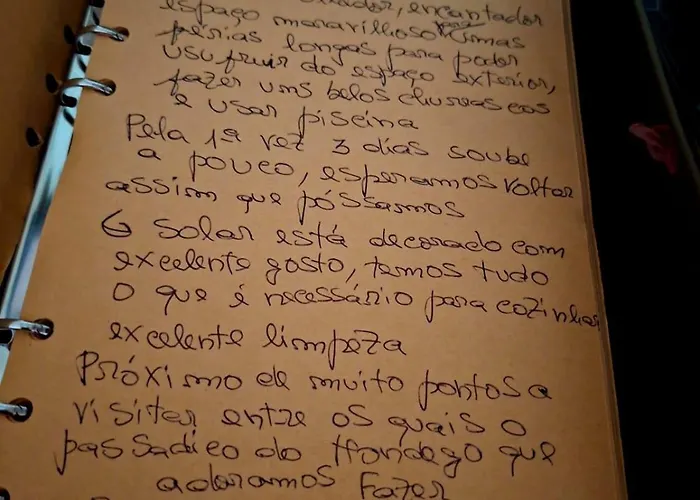 encantador
espaço maravilhoso para umas
férias longas para poder
usufruir do espaço exterior,
fazer uns belos churrascos
e usar piscina
Pela 1ª vez 3 dias soube
a pouco, esperamos voltar
assim que póssamos
O Solar está decorado com
excelente gosto, temos tudo
o que é necessário para cozinhar
excelente limpeza
Próximo de muito pontos a
visitar entre os quais o
passadiço do Mondego que
adoramos fazer